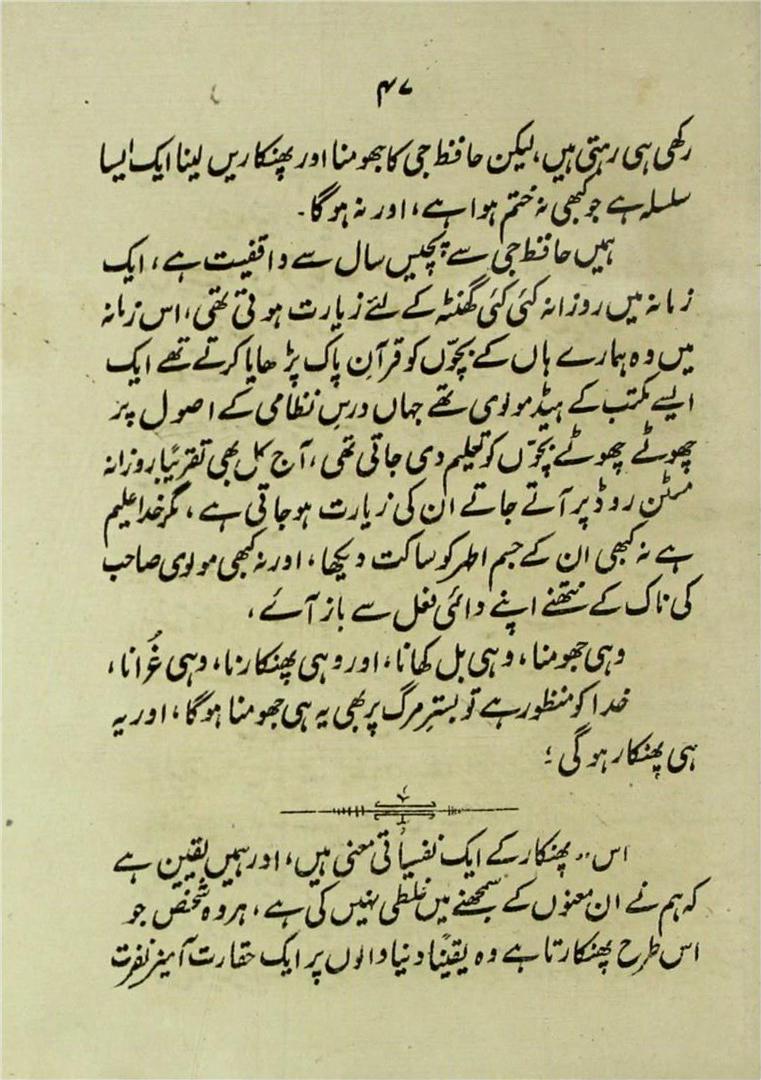 ۴۷
رکھی ہی رہتی ہیں، لیکن حافظ جی کا جھومنا اور پھنکاریں لینا ایک ایسا
سلسلہ ہے جو کبھی نہ ختم ہوا ہے، اور نہ ہوگا۔
ہمیں حافظ جی سے پچیس سال سے واقفیت ہے، ایک
زمانہ میں روزانہ کئی کئی گھنٹہ کے لئے زیارت ہوتی تھی، اس زمانہ
میں وہ ہمارے ہاں کے بچّوں کو قرآنِ پاک پڑھایا کرتے تھے ایک
ایسے مکتب کے ہیڈ مولوی تھے جہاں درسِ نظامی کے اصول پر
چھوٹے چھوٹے بچّوں کو تعلیم دی جاتی تھی، آج کل بھی تقریبًا روزانہ
مسٹن روڈ پر آتے جاتے ان کی زیارت ہو جاتی ہے، مگر خدا علیم
ہے نہ کبھی ان کے جسم اطہر کو ساکت دیکھا، اور نہ کبھی مولوی صاحب
کی ناک کے نتھنے اپنے دائمی فعل سے باز آئے،
وہی جھومنا، وہی بل کھانا، اور وہی پھنکارنا، وہی غُرانا،
خدا کو منظور ہے تو بسترِ مرگ پر بھی یہ ہی جھومنا ہوگا، اور یہ
ہی پھنکار ہوگی ؛
اس ،، پھنکار کے ایک نفسیاتی معنی ہیں، اور ہمیں یقین ہے
کہ ہم نے ان معنوں کے سمجھنے میں غلطی نہیں کی ہے، ہر وہ شخص جو
اس طرح پھنکارتا ہے وہ یقینًا دنیا والوں پر ایک حقارت آمیز نفرت